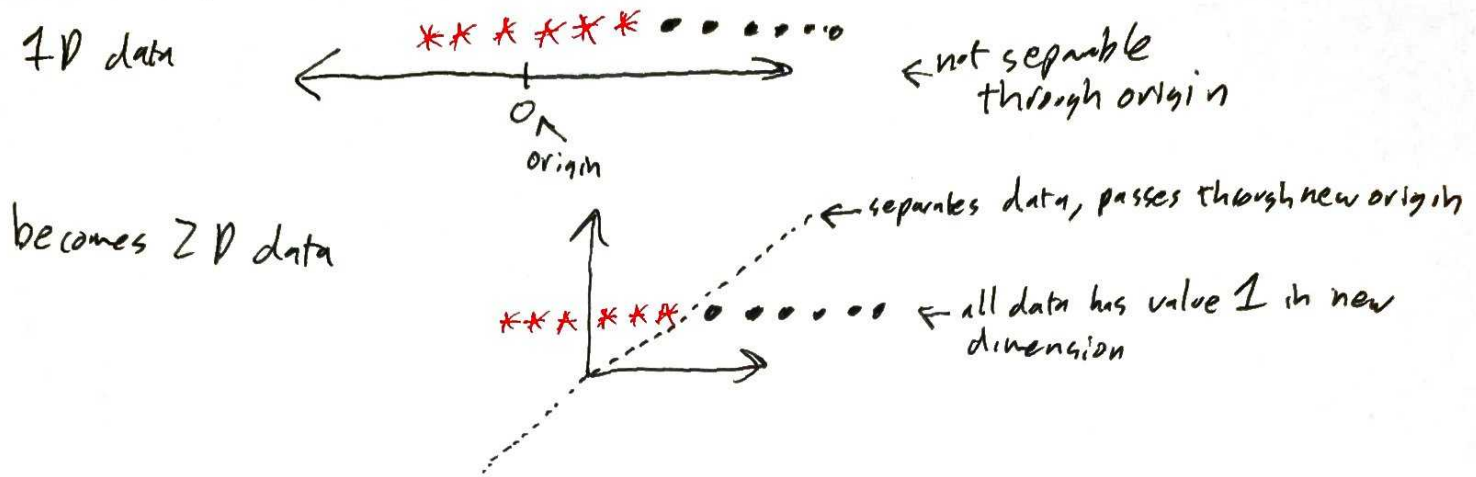 1D data
← not separable
through origin
0
origin
becomes 2D data
← separates data, passes through new origin
← all data has value 1 in new
dimension